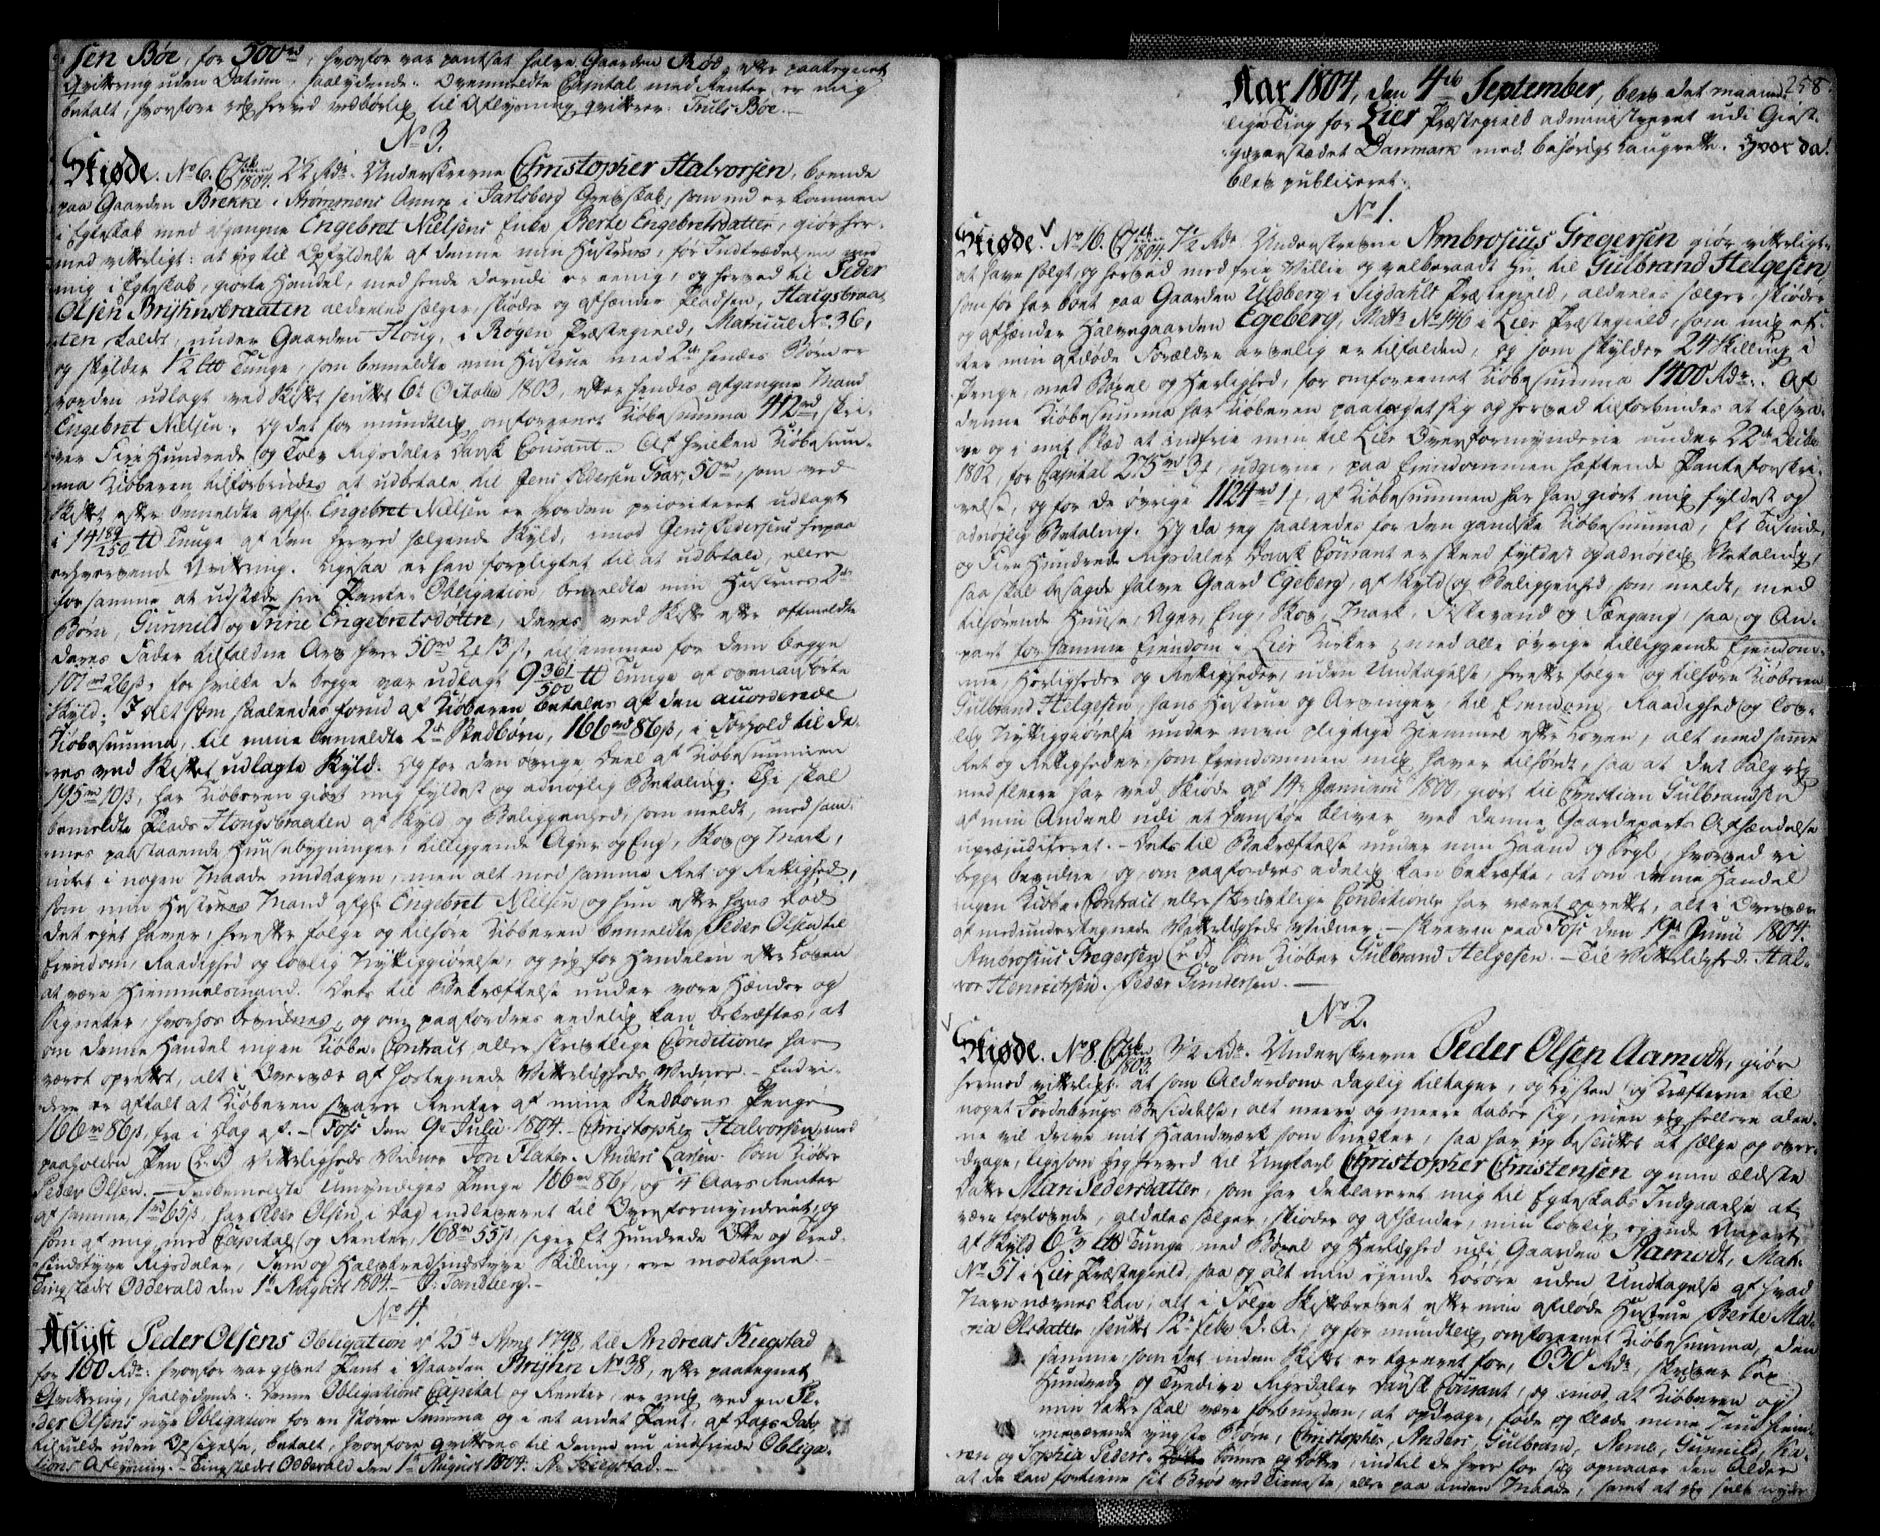 sen Böe, for 500 rd, hvorfor var pantsat halve Gaarden Röe, efter paategnet
Qvittering uden Datum, saalydende: Ovenmeldte Capital med Renter er mig
betalt, hvorfore jeg herved tilbörlig til Aflysning qvitterer. Truls Böe.
No 3.
Skiøde. No 6. 1804. 24 Rdr. Underskrevne Christopher Halvorsen, boende
paa Gaarden Brekke i Strømmens Annex i Jarlsberg Grevskab, som nu er kommen
i Egteskab med afgangne Engebret Nielsens Enke Berte Engebretsdatter, giör her-
med vitterligt: at jeg til Opfyldelse af denne min Hustrues, för Indtrædelsen med
mig i Egteskab, giorte Handel, med hende derudi er eenig, og herved til Peder
Olsen Bryhnsbraaten aldeeles sælger, skiøder og afhænder Pladsen, Haugsbraa-
ten kaldet, under Gaarden Houg, i Rögen Præstegield, Matricul No 36,
og skylder 1½ Lb Tunge, som bemeldte min Hustrue med 2de hendes Børn er
vorden udlagt ved Skiftet sluttet 6te October 1803, efter hendes afgangne Mand
Engebret Nielsen. Og det for mundtlig omforeenet Kiöbesumma 412 rd, skri-
ver Fire Hundrede og Tolv Rigsdaler Dansk Courant. Af hvilken Kiöbesum-
ma Kiöberen tilforbindes at udbetale til Jens Pedersen Graver, 50 rd, som ved
Skiftet efter bemeldte afg. Engebret Nielsen er vorden prioriteret udlagt
i 14 184/250 Lb Tunge af den herved sælgende Skyld, imod Jens Pedersens herpaa
erhvervende Qvittering. Ligesaa er han forpligtet til at udbetale, eller
for samme at udstæde sin Pante-Obligation bemeldte min Hustrues 2de
Børn, Gunnild og Trine Engebretsdøttre, deres ved Skiftet efter oftmeldte
deres Fader tilfaldne Arv hver 50 rd 2 13 s, tilsammen for dem begge
101 rd 26 s, for hvilke de begge var udlagt 9 361/500 Lb Tunge af ovenanførte
Skyld; I det som saaledes forud af Kiöberen betales af den accorderede
Kiöbesumma, til mine bemeldte 2de Stedbörn, 166 rd 86 s, i Forhold til de-
res ved Skiftet udlagte Skyld. Og for den övrige Deel af Kiöbesummen
195 rd 10 s, har Kiöberen giort mig fyldest og adnöjelig Betaling. Thi skal
bemeldte Plads Hougsbraaten af Skyld og Beliggenhed, som meldt, med sam-
mes paastaaende Huusebygninger, tilliggende Ager og Eng, Skov og Mark,
intet i nogen Maade undtagen, men alt med samme Ret og Rettighed,
som min Hustrues Mand afg. Engebret Nielsen og hun efter hans Død
det ejet haver, herefter følge og tilhøre Kiöberen bemeldte Peder Olsen til
Ejendom, Raadighed og lovlig Nyttiggiörelse, og jeg for Handelen efter Loven
at være Hiemmelsmand. Dets til Bekræftelse under vore Hænder og
Signeter, hvorhos bevidnes, og om paafordres eedelig kan bekræftes, at
om denne Handel ingen Kiöbe-Contract eller skriftlige Conditioner har
været oprettet, alt i Overvær af hostegnede Vitterligheds Vidner. Endvi-
dere er aftalt at Kiöberen svarer Renter af mine Stedbörns Penge
166 rd 86 s, fra i Dag af. Foss den 9de Julii 1804. Christopher Halvorsen med
paaholden Pen (L.S.) Vitterligheds Vidner Jon Flater. Anders Larsen. Som Kiöber
Peder Olsen. Indbemeldte Umyndiges Penge 166 rd 86 s, og 4 Aars Renter
af samme, 1 rd 65 s, har Peder Olsen i Dag indleveret til Overformynderiet, og
som af mig, med Capital og Renter, 168 rd 55 s, siger Et Hundrede Otte og Tred-
sindstyve Rigsdaler, Fem og Halvtredsindstyve Skilling, ere modtagne.
Tingstædet Odderald den 1ste Augusti 1804. J. Sandberg.
No 4.
Aflyst Peder Olsens Obligation af 25de April 1798, til Andreas Kiegstad
for 160 Rdr. hvorfor var givet Pant i Gaarden Bryhn No 38, efter paategnet
Qvittering, saalydende: Denne Obligations Capital og Renter, er mig ved en Pe-
der Olsens nye Obligation for en större Summa og i et andet Pant, af Dags Dato,
tilfulde uden Opsigelse, betalt, hvorfore qvitteres til denne nu indfriede Obliga-
tions Aflysning. Tingstædet Odderald den 1ste August 1804. A. Kiegstad.
258.
Aar 1804, den 4de September, blev det maaned-
lige Ting for Lier Præstegield administreret udi Giest-
giverstædet Danmark med behörig Laugrette. Hvor da
blev publiceret:
No 1.
Skiøde. No 16. 1804. 7½ Rdr Underskrevne Ambrosius Gregersen giör vitterligt
at have solgt, og herved med frie Villie og velberaadt Hu, til Gulbrand Helgesen,
som för har boet paa Gaarden Ulsberg i Sigdahls Præstegield, aldeeles sælger, skiøder
og afhænder Halvegaarden Egeberg, Matr. No 146 i Lier Præstegield, som mig ef-
ter min afdøde Forældre arvelig er tilfalden, og som skylder 24 Skilling i
Penge, med Böxel og Herlighed, for omforeenet Kiöbesumma 1400 Rdr. Af
denne Kiöbesumma har Kiöberen paataget sig og herved tilforbindes at tilsva-
re og i mit Stæd at indfrie min til Lier Overformynderie under 22de Decbr
1802, for Capital 275 rd 3, udgivne, paa Ejendommen hæftende Panteforskri-
velse, og for de övrige 1124 rd 1, af Kiöbesummen har han giort mig fyldest og
adnöjelig Betaling. Og da jeg saaledes for den gandske Kiöbesumma, Et Tusinde
og Fire Hundrede Rigsdaler Dansk Courant er skeed fyldest og adnöjelig Betaling,
saa skal besagde halve Gaard Egeberg, af Skyld og Beliggenhed som meldt, med
tilhørende Huuse, Ager, Eng, Skov, Mark, Fiskevand og Fægang, saa og An-
part for samme Ejendom i Lier Kirker, med alle övrige tilliggende Ejendom-
me, Herligheder og Rettigheder, uden Undtagelse, herefter følge og tilhøre Kiöberen
Gulbrand Helgesen, hans Hustrue og Arvinger, til Ejendom, Raadighed og lov-
lig Nyttiggiörelse under min pligtige Hiemmel efter Loven, alt med samme
Ret og Rettigheder, som Ejendommen mig haver tilhört, saa at det Salg jeg
med fleere har ved Skiøde af 14de Januarii 1800, giort til Christian Gulbrandsen
af min Andeel udi et Damstæe bliver ved denne Gaardeparts Afhændelse
upræjudiceret. Dets til Bekræftelse under min Haand og Segl, hvorved vi
begge bevidne, og om paafordres eedelig kan bekræfte, at om denne Handel
ingen Kiöbe-Contract eller skriftlige Conditioner har været oprettet, alt i Overvær
af medunderteegnede Vitterligheds Vidner. Skreven paa Foss den 19de Junii 1804.
Ambrosius Gregersen (L.S.) Som Kiöber Gulbrand Helgesen. Til Vitterlighed. Hal-
vor Henrichsen. Peder Gundersen.
No 2.
Skiøde. No 8. 1803. 3½ Rdr. Underskrevne Peder Olsen Aamodt, giöre
hermed vitterligt: at som Alderdom daglig tiltager, og Lysten og Kræfterne til
noget Jordebrugs Besiddelse, alt meere og meere taber sig, men jeg hellere alee-
ne vil drive mit Haandværk som Snedker, saa har jeg besluttet at sælge og over-
drage, ligesom jeg herved til Ungkarl Christopher Christensen og min ældste
Datter Mari Pedersdatter, som har deklareret mig til Egteskabs Indgaaelse at
være forlovede, aldeles sælger, skiøder og afhænder, min lovlig ejende Anpart
af Skyld 6⅓ Lb Tunge med Böxel og Herlighed udi Gaarden Aamodt, Matr.
No 57 i Lier Præstegield, saa og alt min ejende Løsøre uden Undtagelse af hvad
Navn nævnes kan, alt i Følge Skiftebrevet efter min afdøde Hustrue Berte Ma-
ria Olsdatter, sluttet 12te Febr. d. A., og for mundtlig omforeenet Kiöbesumma, den
samme som det inden Skiftet er taxeret for, 630 Rdr, skriver Sex
Hundrede og Tredive Rigsdaler Dansk Courant, og imod, at Kiöberen og
min Datter skal være forbunden, at opdrage, føde og klæde mine Tvende
nuværende yngste Børn, Christopher, Anders, Gulbrand, Anne, Gunnild, Ka-
ren og Sophia Peders- Sönner og Dötre, indtil de hver for sig opnaaer den Alder
at de kan fortiene sit Brød ved Tieneste, eller paa anden Maade, samt at jeg selv nyder